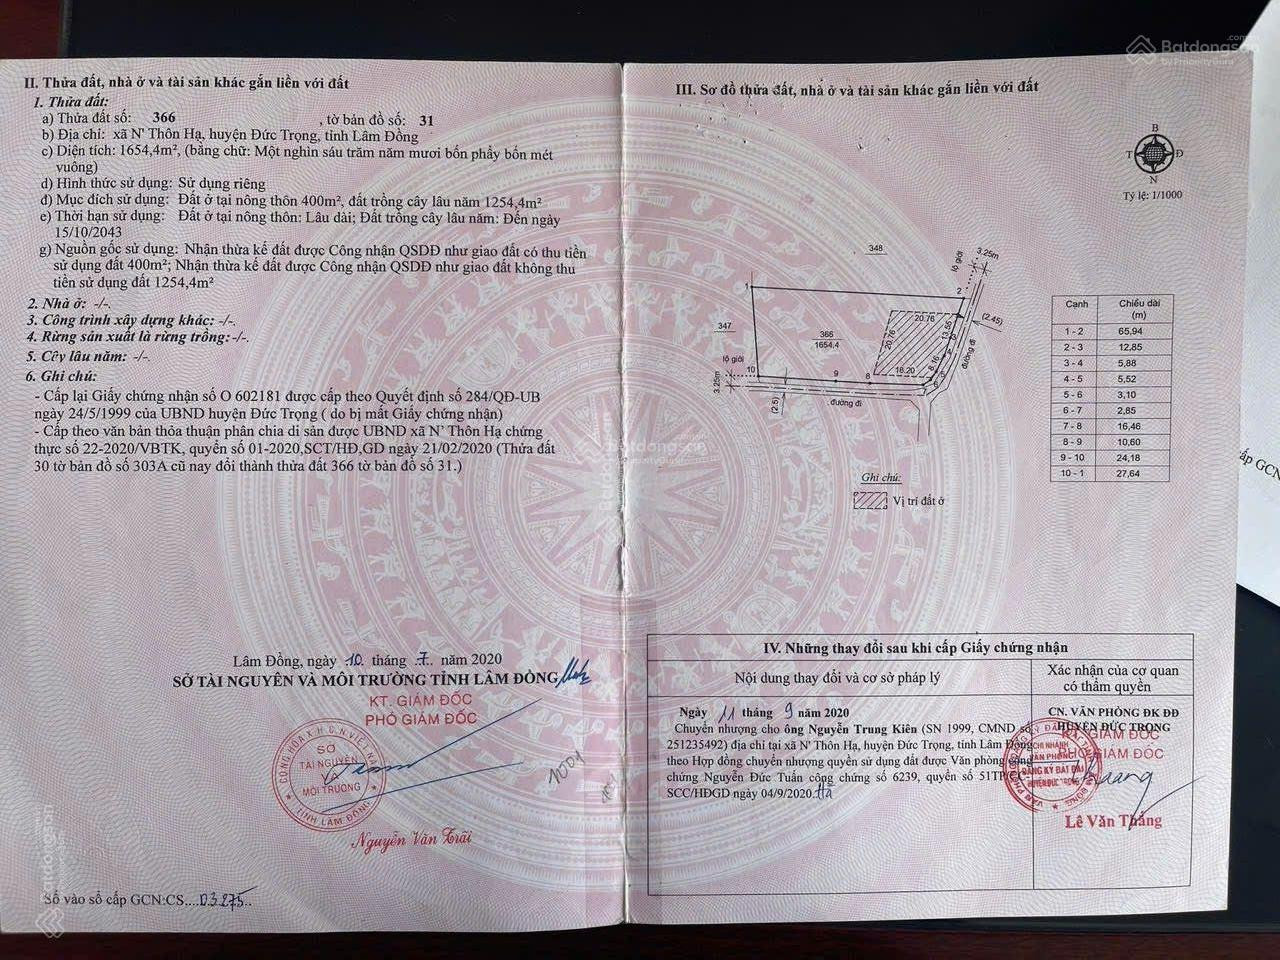 II. Thửa đất, nhà ở và tài sản khác gắn liền với đất
1. Thửa đất:
a) Thửa đất số: 366 , tờ bản đồ số: 31
b) Địa chỉ: xã N' Thôn Hạ, huyện Đức Trọng, tỉnh Lâm Đồng
c) Diện tích: 1654,4m², (bằng chữ: Một nghìn sáu trăm năm mươi bốn phẩy bốn mét
vuông)
d) Hình thức sử dụng: Sử dụng riêng
đ) Mục đích sử dụng: Đất ở tại nông thôn 400m², đất trồng cây lâu năm 1254,4m²
e) Thời hạn sử dụng: Đất ở tại nông thôn: Lâu dài; Đất trồng cây lâu năm: Đến ngày
15/10/2043
g) Nguồn gốc sử dụng: Nhận thừa kế đất được Công nhận QSDĐ như giao đất có thu tiền
sử dụng đất 400m²; Nhận thừa kế đất được Công nhận QSDĐ như giao đất không thu
tiền sử dụng đất 1254,4m²
2. Nhà ở: -/-.
3. Công trình xây dựng khác: -/-.
4. Rừng sản xuất là rừng trồng:-/-.
5. Cây lâu năm: -/-
6. Ghi chú:
- Cấp lại Giấy chứng nhận số O 602181 được cấp theo Quyết định số 284/QĐ-UB
ngày 24/5/1999 của UBND huyện Đức Trọng ( do bị mất Giấy chứng nhận)
- Cấp theo văn bản thỏa thuận phân chia di sản được UBND xã N' Thôn Hạ chứng
thực số 22-2020/VBTK, quyển số 01-2020,SCT/HĐ,GD ngày 21/02/2020 (Thửa đất
30 tờ bản đồ số 303A cũ nay đổi thành thửa đất 366 tờ bản đồ số 31.)
Lâm Đồng, ngày 10 tháng 7. năm 2020
SỞ TÀI NGUYÊN VÀ MÔI TRƯỜNG TỈNH LÂM ĐỒNG
KT. GIÁM ĐỐC
PHÓ GIÁM ĐỐC
CỘNG HÒA X.H.C.N VIỆT NAM
SỞ
TÀI NGUYÊN
VÀ
MÔI TRƯỜNG
TỈNH LÂM ĐỒNG
Nguyễn Văn Trãi
1001
Số vào sổ cấp GCN:CS....03275..
III. Sơ đồ thửa đất, nhà ở và tài sản khác gắn liền với đất
B
T Đ
N
Tỷ lệ: 1/1000
348
lộ giới
3.25m
1
2
(2.45)
20.76
13.55
347
366
1654.4
20.76
8.16
18.20
đường đi
lộ giới
10
9
8
3.25m
(2.5)
đường đi
Ghi chú:
Vị trí đất ở
Cạnh Chiều dài
(m)
1 - 2 65,94
2 - 3 12,85
3 - 4 5,88
4 - 5 5,52
5 - 6 3,10
6 - 7 2,85
7 - 8 16,46
8 - 9 10,60
9 - 10 24,18
10 - 1 27,64
IV. Những thay đổi sau khi cấp Giấy chứng nhận
Nội dung thay đổi và cơ sở pháp lý
Xác nhận của cơ quan
có thẩm quyền
Ngày 11 tháng 9 năm 2020
Chuyển nhượng cho ông Nguyễn Trung Kiên (SN 1999, CMND số
251235492) địa chỉ tại xã N' Thôn Hạ, huyện Đức Trọng, tỉnh Lâm Đồng
theo Hợp đồng chuyển nhượng quyền sử dụng đất được Văn phòng công
chứng Nguyễn Đức Tuấn công chứng số 6239, quyển số 51TP/CC-
SCC/HĐGD ngày 04/9/2020.
CN. VĂN PHÒNG ĐK ĐĐ
HUYỆN ĐỨC TRỌNG
KT. GIÁM ĐỐC
PHÓ GIÁM ĐỐC
CHI NHÁNH
VĂN PHÒNG
ĐĂNG KÝ ĐẤT ĐAI
HUYỆN ĐỨC TRỌNG
Lê Văn Thắng
cấp GCN
Batdongsan.com.vn
by PropertyGuru